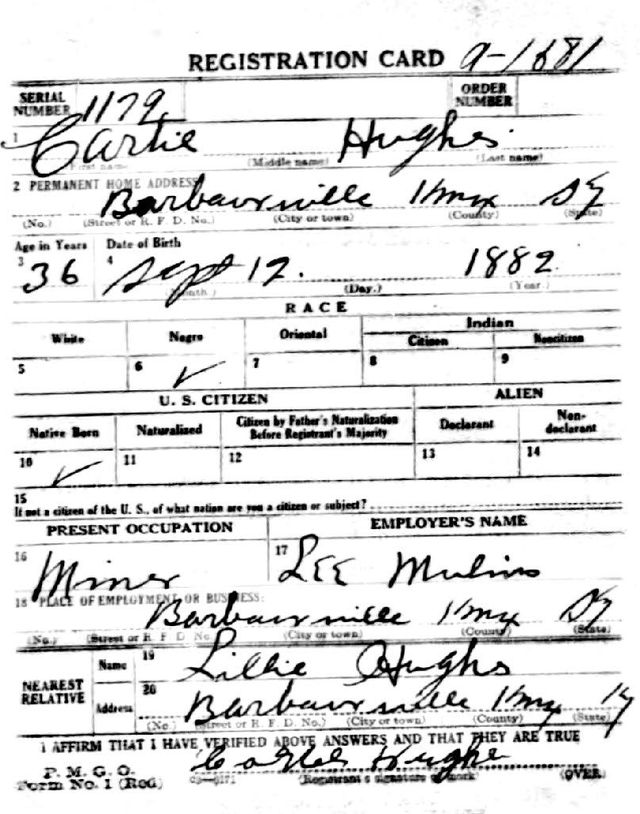 REGISTRATION CARD 9-1681
SERIAL NUMBER 1179 ORDER NUMBER
1 Cartie Hughes
First name (Middle name) (Last name)
2 PERMANENT HOME ADDRESS
Barbourville Knox Ky
(No.) (Street or R. F. D. No.) (City or town) (County) (State)
Age in Years Date of Birth
3 36 4 Sept 12. 1882
(Month.) (Day.) (Year.)
RACE
White Negro Oriental Indian
Citizen Noncitizen
5 6 ✓ 7 8 9
U. S. CITIZEN ALIEN
Native Born Naturalized Citizen by Father's Naturalization Before Registrant's Majority Declarant Non-declarant
10 ✓ 11 12 13 14
15
If not a citizen of the U. S., of what nation are you a citizen or subject?
PRESENT OCCUPATION EMPLOYER'S NAME
16 Miner 17 LEE Mulins
18 PLACE OF EMPLOYMENT OR BUSINESS:
Barbourville Knox Ky
(No.) (Street or R. F. D. No.) (City or town) (County) (State)
NEAREST RELATIVE Name 19 Lillie Hughs
Address 20 Barbourville Knox Ky
(No.) (Street or R. F. D. No.) (City or town) (County) (State)
I AFFIRM THAT I HAVE VERIFIED ABOVE ANSWERS AND THAT THEY ARE TRUE
P. M. G. O. Hughe
Form No. 1 (Red) (Registrant's signature or mark) (OVER)